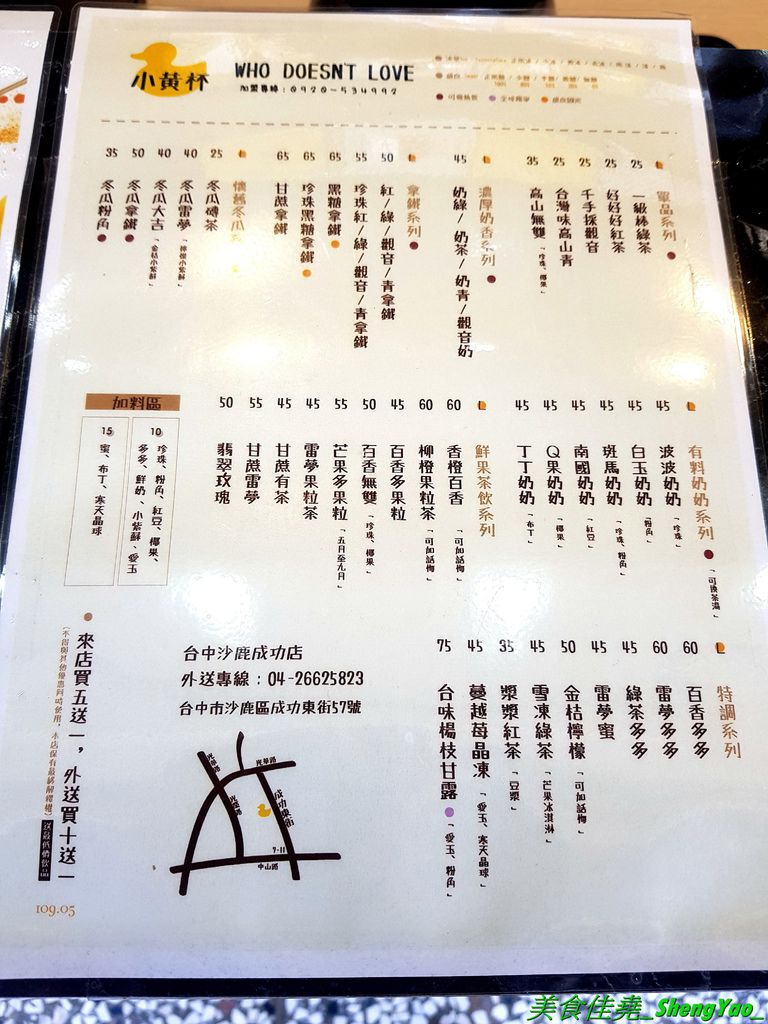 小黃杯
WHO DOESNT LOVE
加盟專線:0920-534992
可做熱飲
單品系列
一級棒綠茶 25
好好好紅茶 25
千手採觀音 25
台灣味高山青 25
高山無雙「珍珠、椰果」 35
濃厚奶香系列
奶綠/奶茶/奶青/觀音奶 45
拿鐵系列
紅/綠/觀音/青拿鐵 50
珍珠紅/綠/觀音/青拿鐵 55
黑糖拿鐵 65
珍珠黑糖拿鐵 65
甘蔗拿鐵 65
懷舊冬瓜
冬瓜磚茶 25
冬瓜雷夢「檸檬小紫蘇」 40
冬瓜大吉「金桔小紫蘇」 40
冬瓜拿鐵 50
冬瓜粉角 35
有料奶奶系列「可換茶湯」
波波奶奶「珍珠」 45
白玉奶奶「粉角」 45
斑馬奶奶「珍珠、粉角」 45
南國奶奶「紅豆」 45
Q果奶奶「椰果」 45
丁丁奶奶「布丁」 45
鮮果茶飲系列
香橙百香「可加話梅」 60
柳橙果粒茶「可加話梅」 60
百香多果粒 45
百香無雙「珍珠、椰果」 50
芒果多果粒「五月至九月」 55
雷夢果粒茶 45
甘蔗有茶 45
甘蔗雷夢 55
翡翠玫瑰 50
加料區
10 珍珠、粉角、紅豆、椰果、
多多、鮮奶、小紫蘇、愛玉
15 蜜、布丁、寒天晶球
特調系列
百香多多 60
雷夢多多 60
綠茶多多 45
雷夢蜜 45
金桔檸檬「可加話梅」 50
雪凍綠茶「芒果冰淇淋」 45
漿漿紅茶「豆漿」 35
蔓越莓晶凍「愛玉、寒天晶球」 45
台味楊枝甘露「愛玉、粉角」 75
台中沙鹿成功店
外送專線:04-26625823
台中市沙鹿區成功東街57號
光華路
成功東街
7-11
中山路
來店買五送一,外送買十送一
(不得與其他優惠同時使用,本店保有最終解釋權)
送最低價飲品
109.05
美食佳堯_ShengYao_